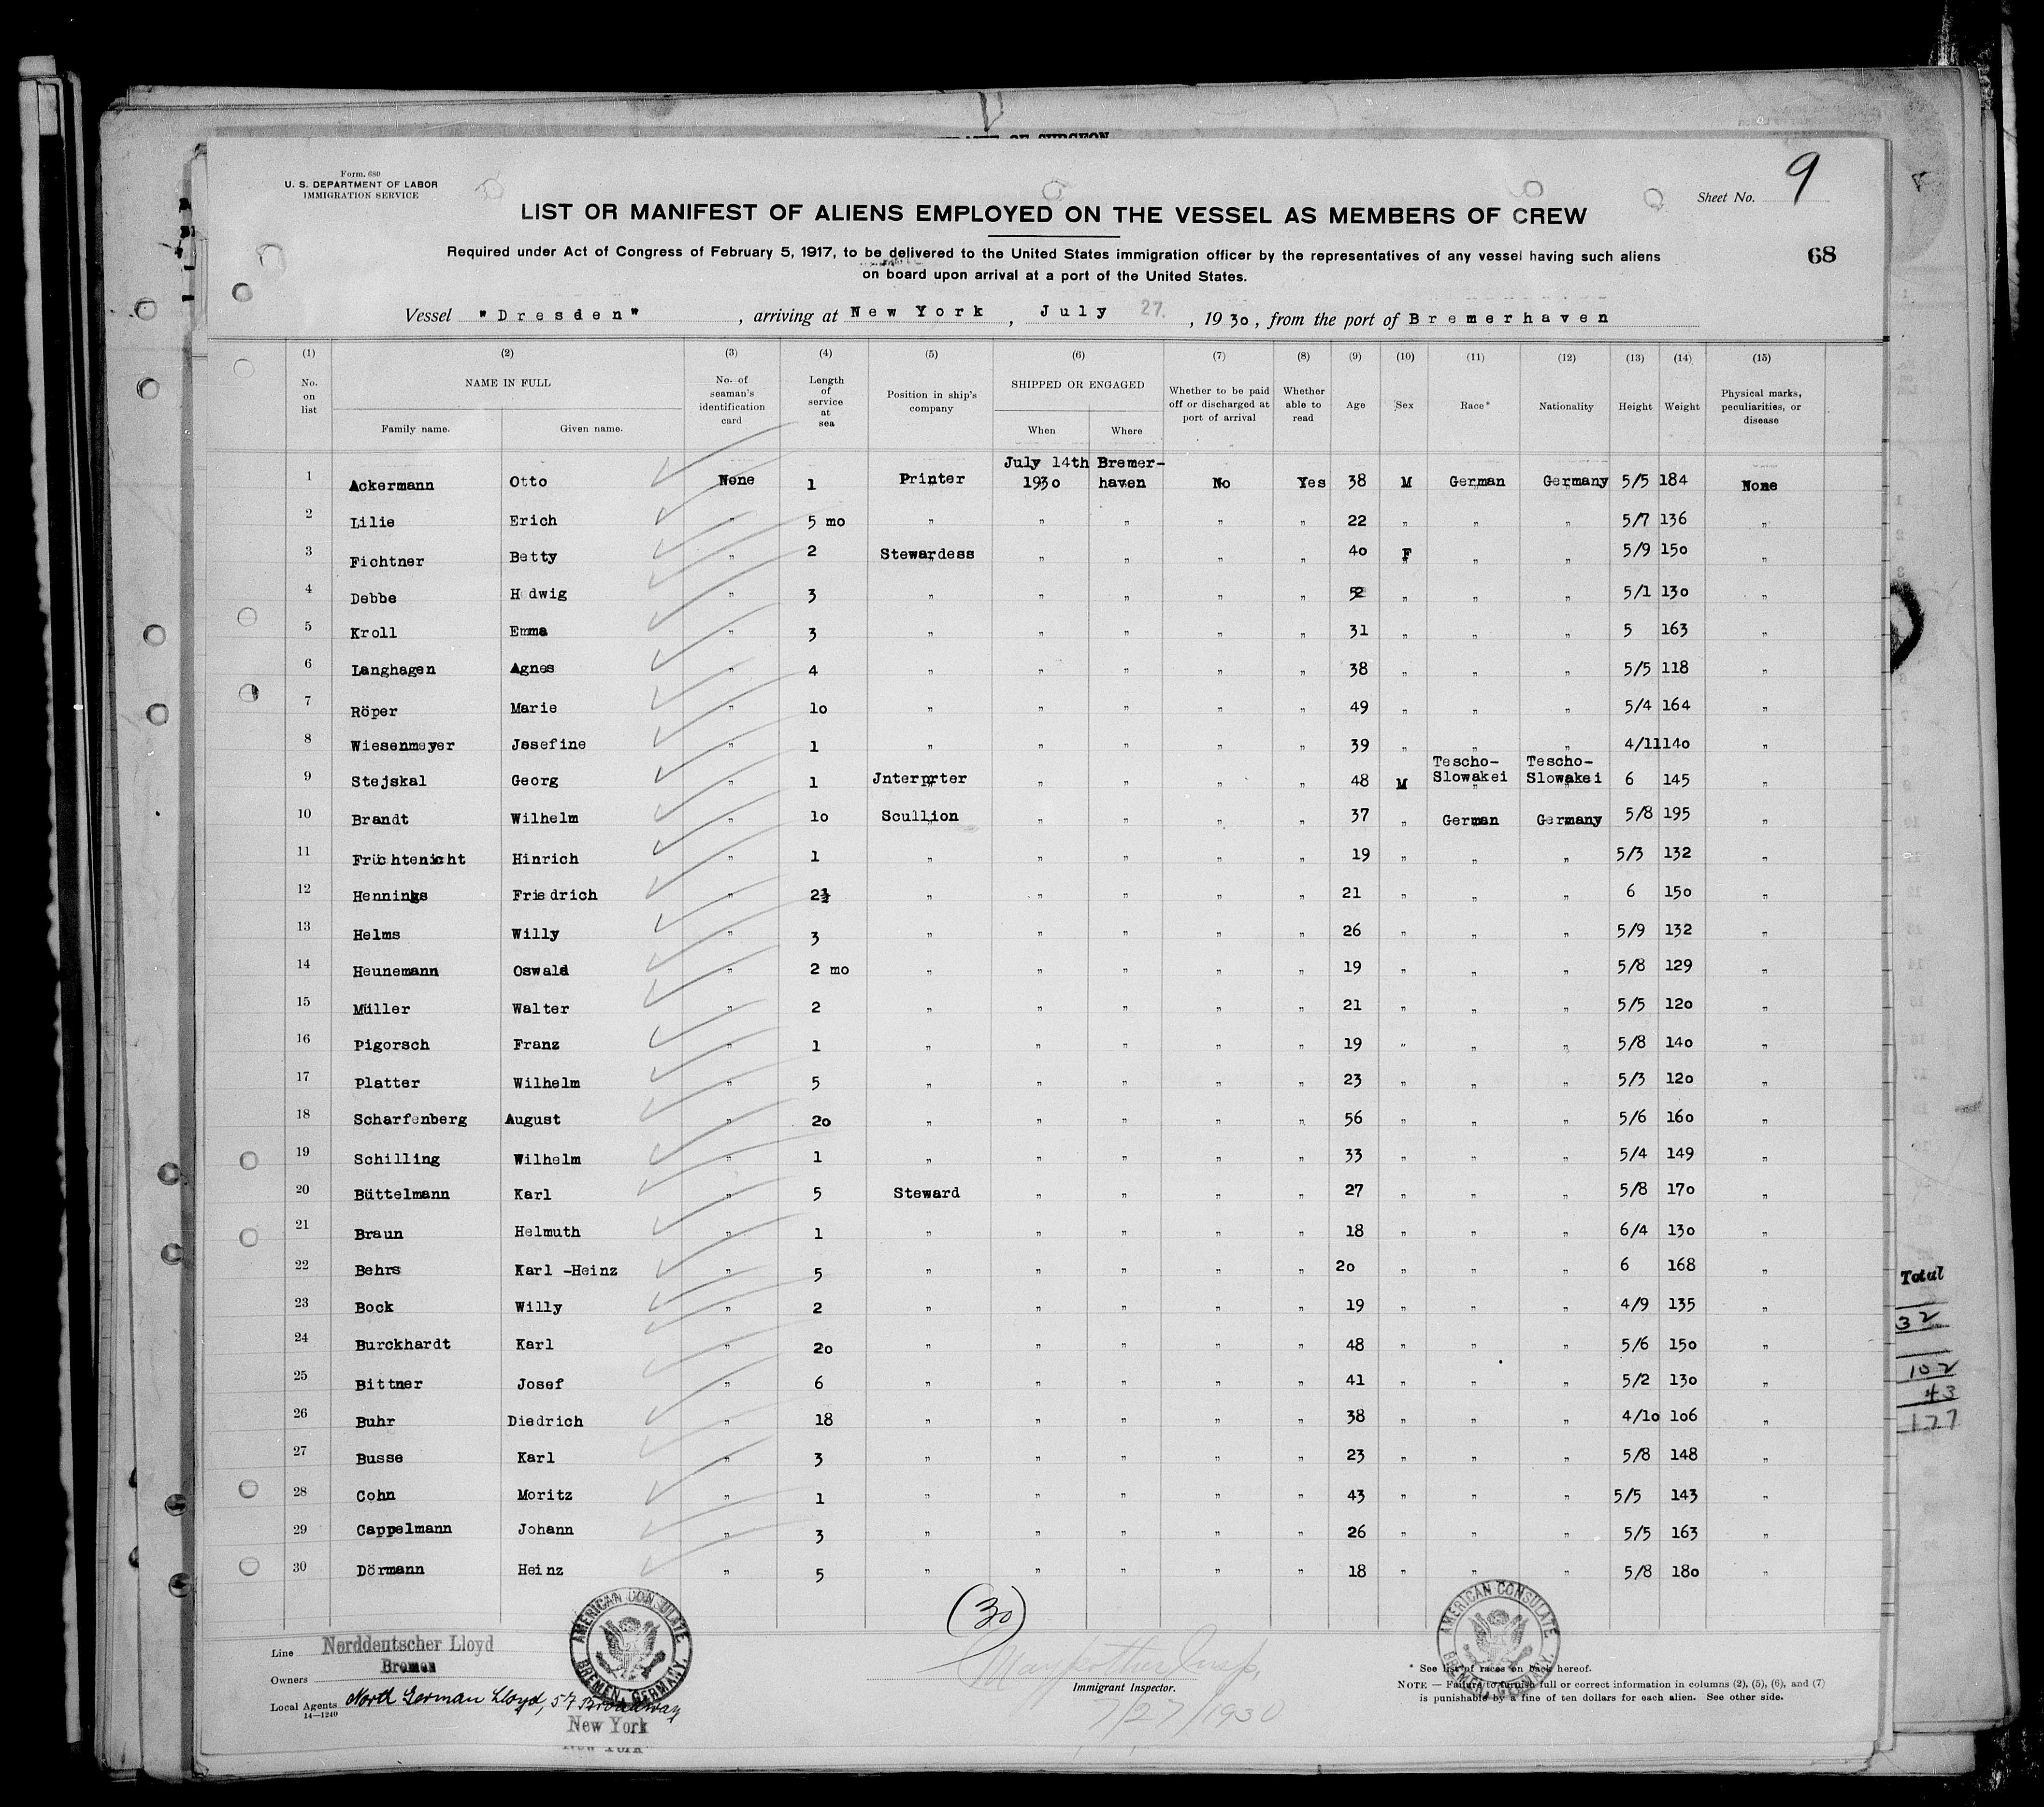 OF SURGEON
Form. 680
U. S. DEPARTMENT OF LABOR
IMMIGRATION SERVICE
Sheet No. 9
LIST OR MANIFEST OF ALIENS EMPLOYED ON THE VESSEL AS MEMBERS OF CREW
Required under Act of Congress of February 5, 1917, to be delivered to the United States immigration officer by the representatives of any vessel having such aliens
on board upon arrival at a port of the United States.
68
Vessel "Dresden", arriving at New York, July 27., 1930, from the port of Bremerhaven
(1) (2) (3) (4) (5) (6) (7) (8) (9) (10) (11) (12) (13) (14) (15)
No. on list NAME IN FULL Family name. Given name. No. of seaman's identification card Length of service at sea Position in ship's company SHIPPED OR ENGAGED When Where Whether to be paid off or discharged at port of arrival Whether able to read Age Sex Race* Nationality Height Weight Physical marks, peculiarities, or disease
1 Ackermann Otto None 1 Printer July 14th 1930 Bremer-haven No Yes 38 M German Germany 5/5 184 None
2 Lilie Erich " 5 mo " " " " " 22 " " " 5/7 136 "
3 Fichtner Betty " 2 Stewardess " " " " 40 F " " 5/9 150 "
4 Debbe H dwig " 3 " " " " " 52 " " " 5/1 130 "
5 Kroll Emma " 3 " " " " " 31 " " " 5 163 "
6 Langhagen Agnes " 4 " " " " " 38 " " " 5/5 118 "
7 Röper Marie " 10 " " " " " 49 " " " 5/4 164 "
8 Wiesenmeyer Josefine " 1 " " " " " 39 " " " 4/11 140 "
9 Stejskal Georg " 1 Jnterprter " " " " 48 M Tescho-Slowakei Tescho-Slowakei 6 145 "
10 Brandt Wilhelm " 10 Scullion " " " " 37 " German Germany 5/8 195 "
11 Früchtenicht Hinrich " 1 " " " " " 19 " " " 5/3 132 "
12 Hennings Friedrich " 2½ " " " " " 21 " " " 6 150 "
13 Helms Willy " 3 " " " " " 26 " " " 5/9 132 "
14 Heunemann Oswald " 2 mo " " " " " 19 " " " 5/8 129 "
15 Müller Walter " 2 " " " " " 21 " " " 5/5 120 "
16 Pigorsch Franz " 1 " " " " " 19 " " " 5/8 140 "
17 Platter Wilhelm " 5 " " " " " 23 " " " 5/3 120 "
18 Scharfenberg August " 20 " " " " " 56 " " " 5/6 160 "
19 Schilling Wilhelm " 1 " " " " " 33 " " " 5/4 149 "
20 Büttelmann Karl " 5 Steward " " " " 27 " " " 5/8 170 "
21 Braun Helmuth " 1 " " " " " 18 " " " 6/4 130 "
22 Behrs Karl -Heinz " 5 " " " " " 20 " " " 6 168 "
23 Bock Willy " 2 " " " " " 19 " " " 4/9 135 "
24 Burckhardt Karl " 20 " " " " " 48 " " " 5/6 150 "
25 Bittner Josef " 6 " " " " " 41 " " " 5/2 130 "
26 Buhr Diedrich " 18 " " " " " 38 " " " 4/10 106 "
27 Busse Karl " 3 " " " " " 23 " " " 5/8 148 "
28 Cohn Moritz " 1 " " " " " 43 " " " 5/5 143 "
29 Cappelmann Johann " 3 " " " " " 26 " " " 5/5 163 "
30 Dörmann Heinz " 5 " " " " " 18 " " " 5/8 180 "
Total
32
102
43
177
(30)
Line Norddeutscher Lloyd
Owners Bremen
Local Agents North German Lloyd, 57 Broadway
14—1240
New York
New York
AMERICAN CONSULATE
BREMEN, GERMANY.
Immigrant Inspector.
7/27/1930
AMERICAN CONSULATE
BREMEN, GERMANY.
* See list of races on back hereof.
NOTE — Failure to furnish full or correct information in columns (2), (5), (6), and (7)
is punishable by a fine of ten dollars for each alien. See other side.